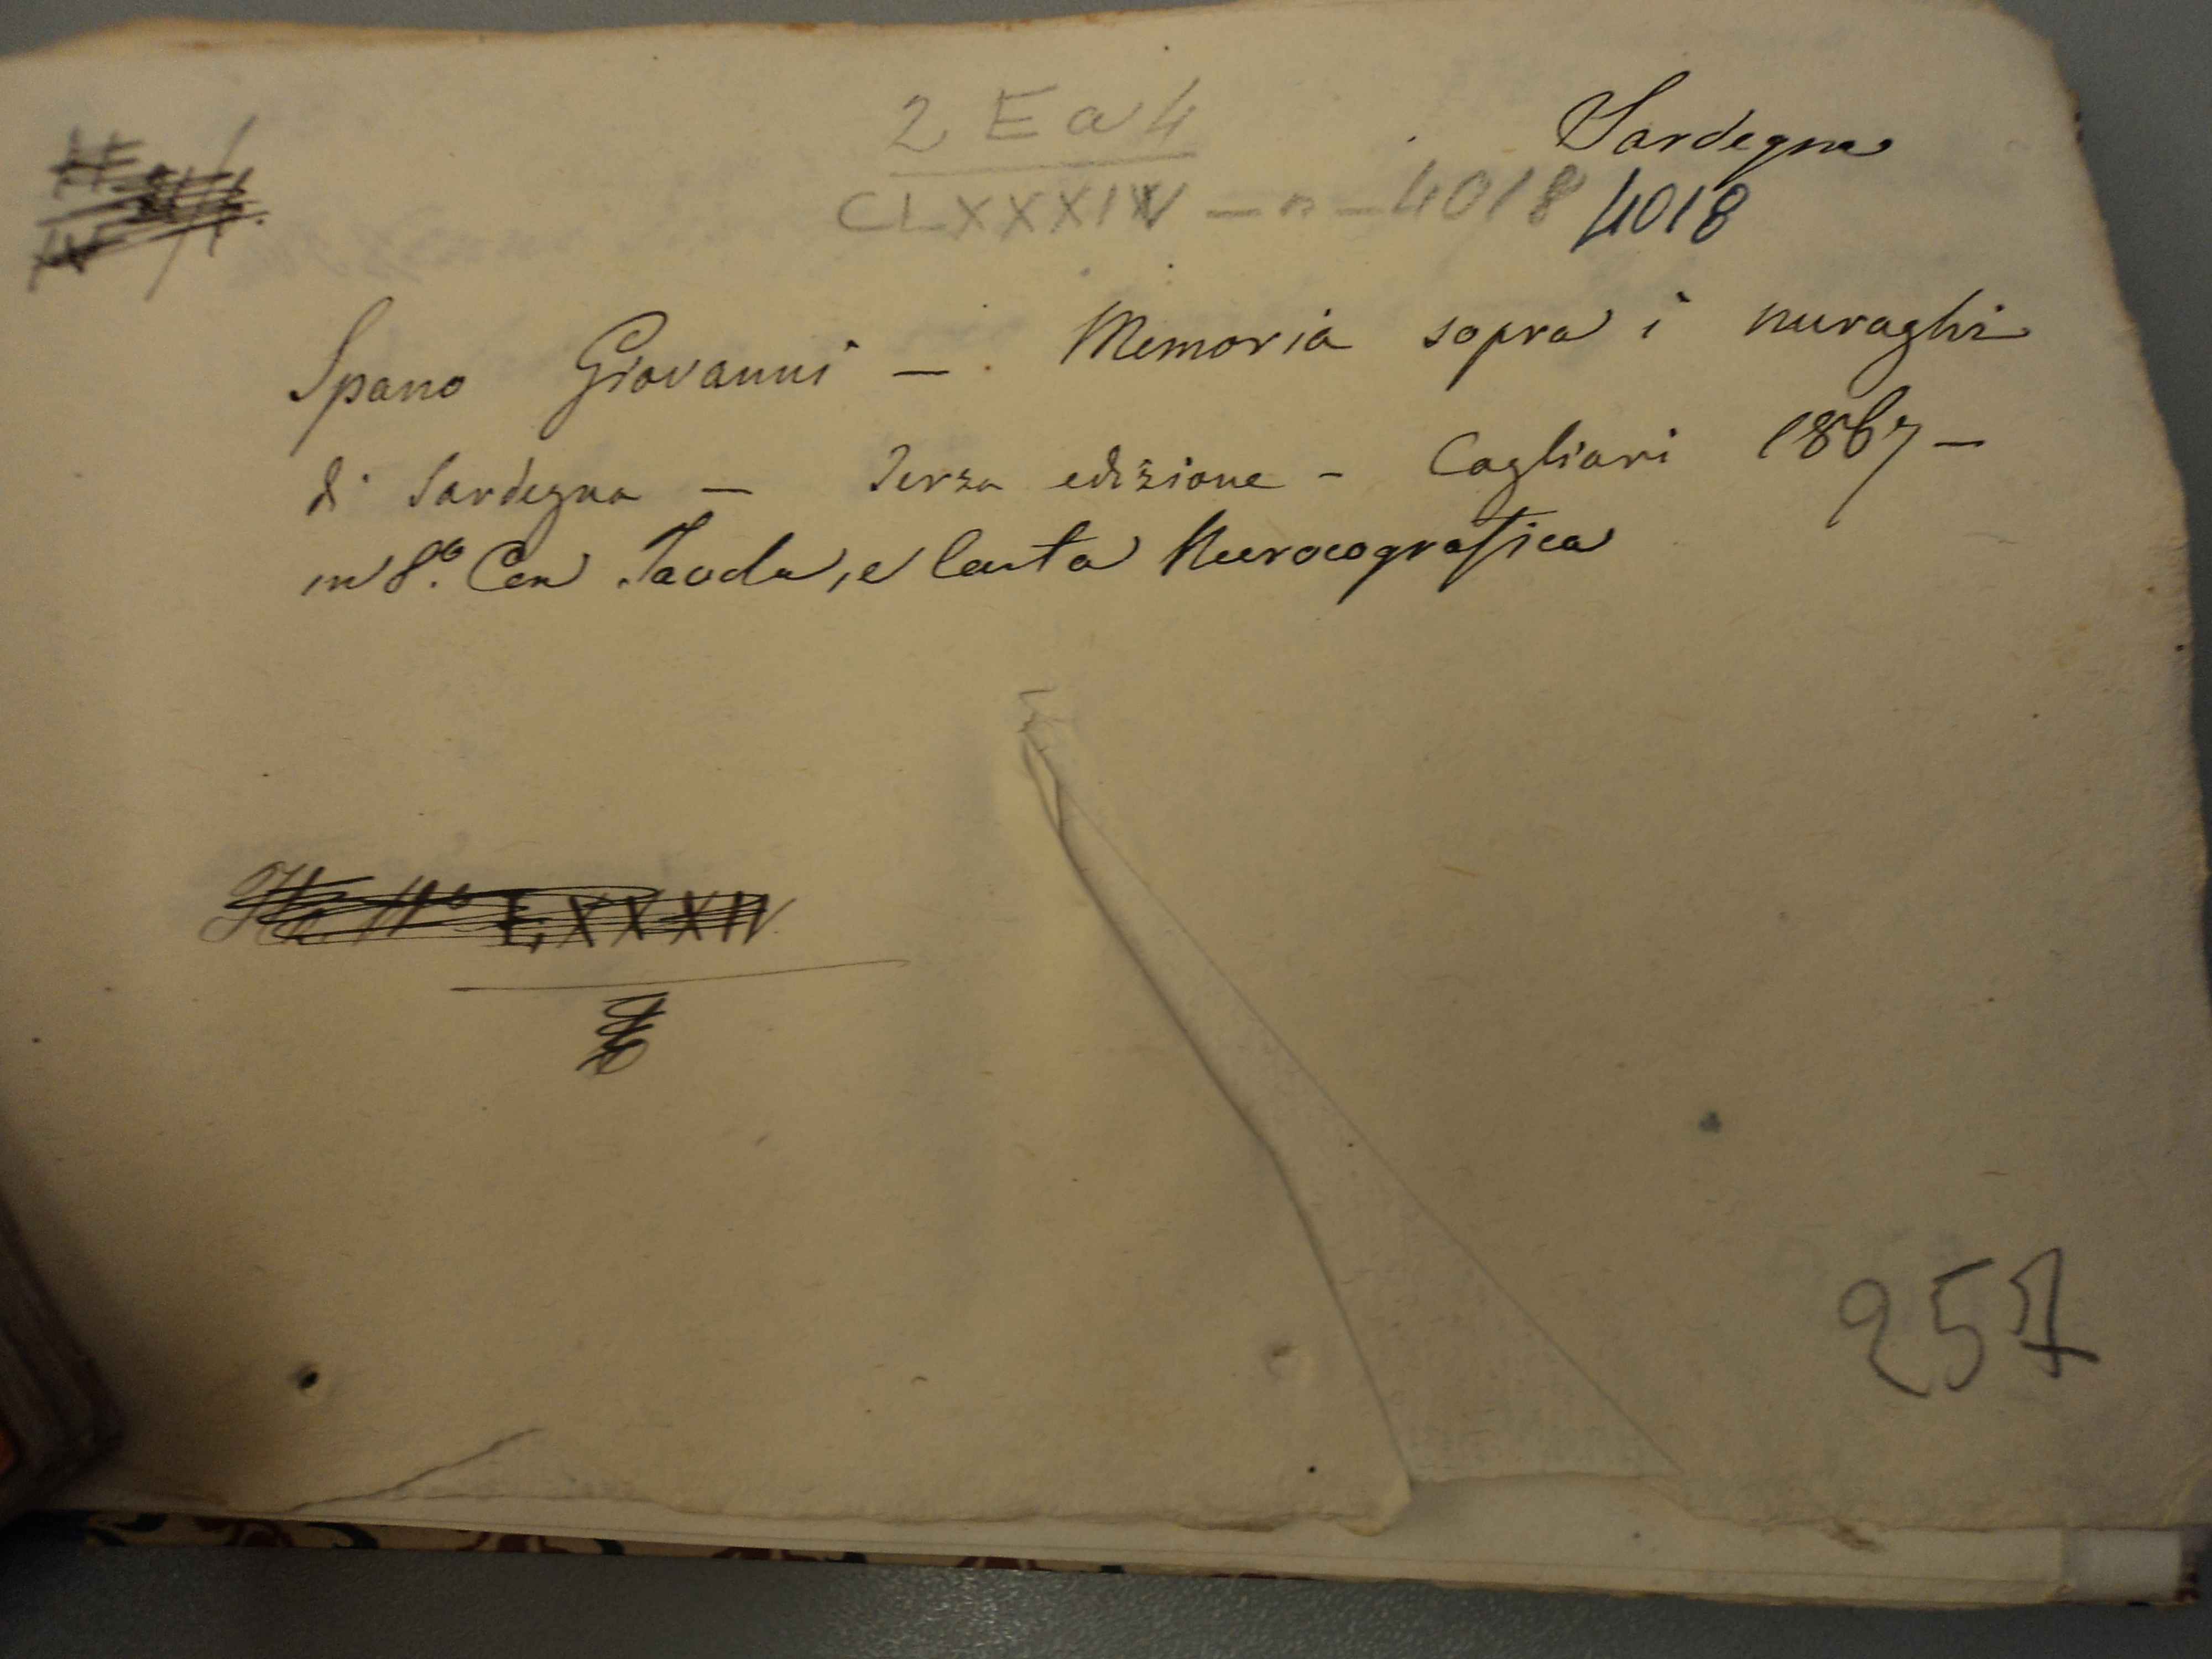 2 E a 4
Sardegna
CLXXXIV - n - 4018 4018
Spano Giovanni - Memoria sopra i nuraghi
di Sardegna - Terza edizione - Cagliari 1867 -
in 8.º Con Tavola, e Carta Nurocografica
LXXXIV
257